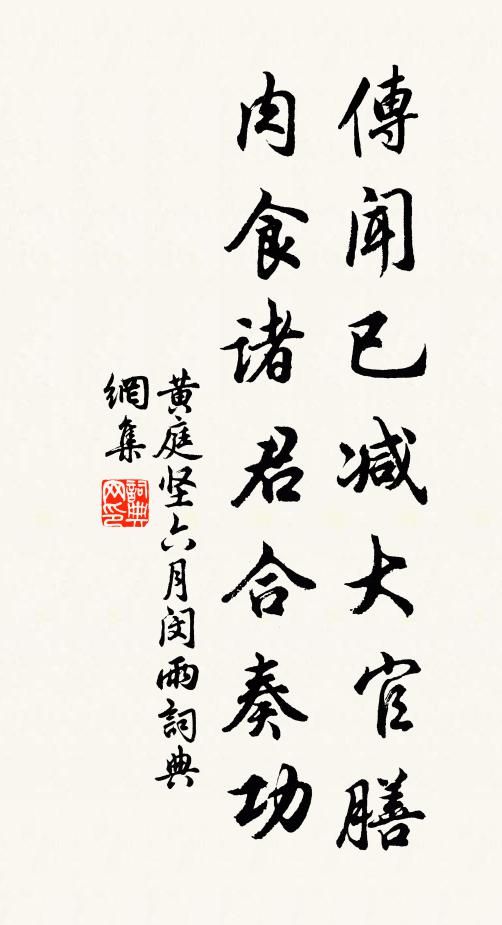 傳聞已减大官膳
肉食諸君合奏功
黄庭坚六月闵雨詞典
網集
詞典
网印